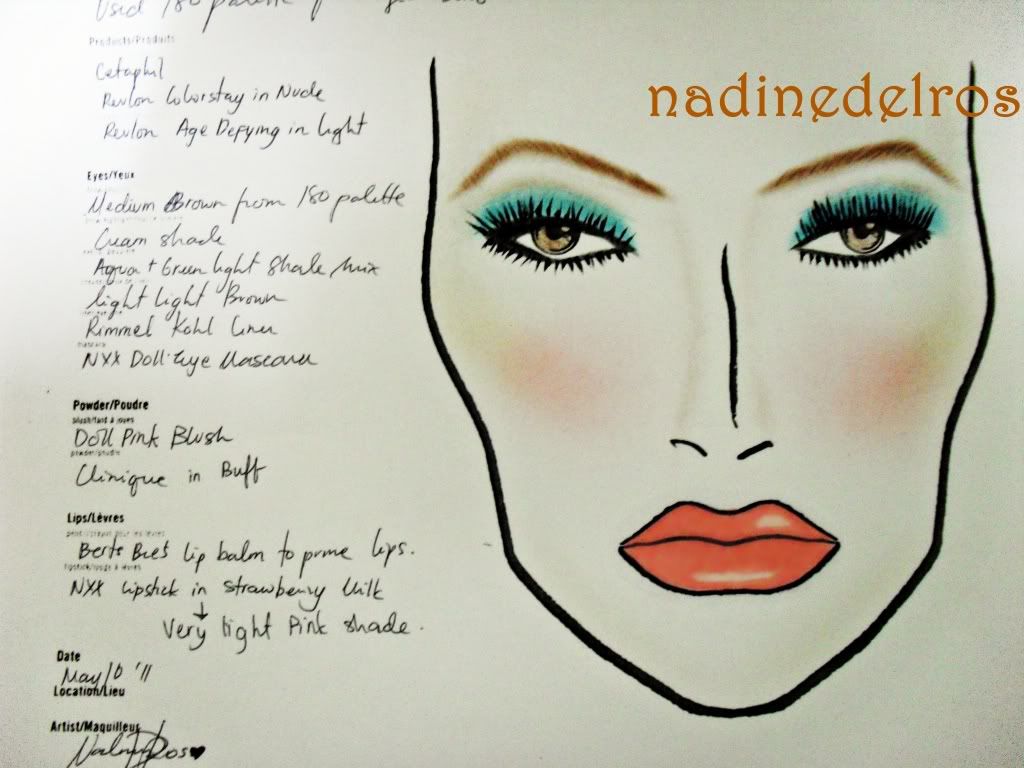 Used 180 palette
Products/Produits
Cetaphil
Revlon Colorstay in Nude
Revlon Age Defying in light
Eyes/Yeux
Medium Brown from 180 palette
Cream shade
Aqua + Green light shade mix
light light Brown
Rimmel Kohl liner
mascara
NYX Doll Eye Mascara
Powder/Poudre
blush/fard à joues
Doll Pink Blush
powder/poudre
Clinique in Buff
Lips/Lèvres
Berts Bee's lip balm to prime lips.
lipstick/rouge à lèvres
NYX lipstick in strawberry Milk
↓
Very light Pink shade.
Date
May 10 '11
Location/Lieu
Artist/Maquilleur
nadinedelros